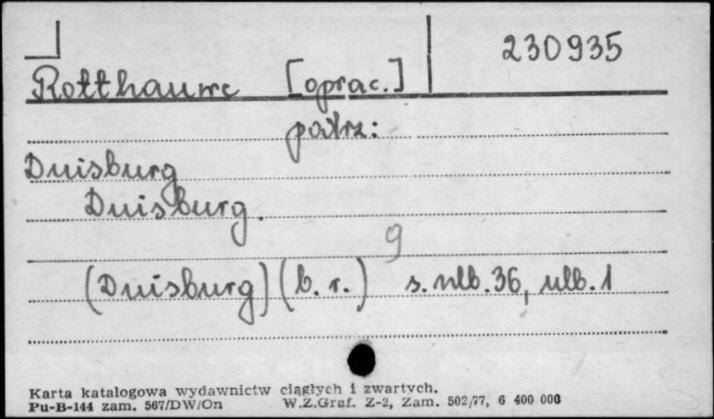 230935
Rotthauwe [oprac.]
patrz:
Duisburg
Duisburg.
9
(Duisburg) (b. r.) s. nlb. 36, ulb. 1
Karta katalogowa wydawnictw ciągłych i zwartych.
Pu-B-144 zam. 567/DW/On W.Z.Graf. Z-2, Zam. 502/77, 6 400 000